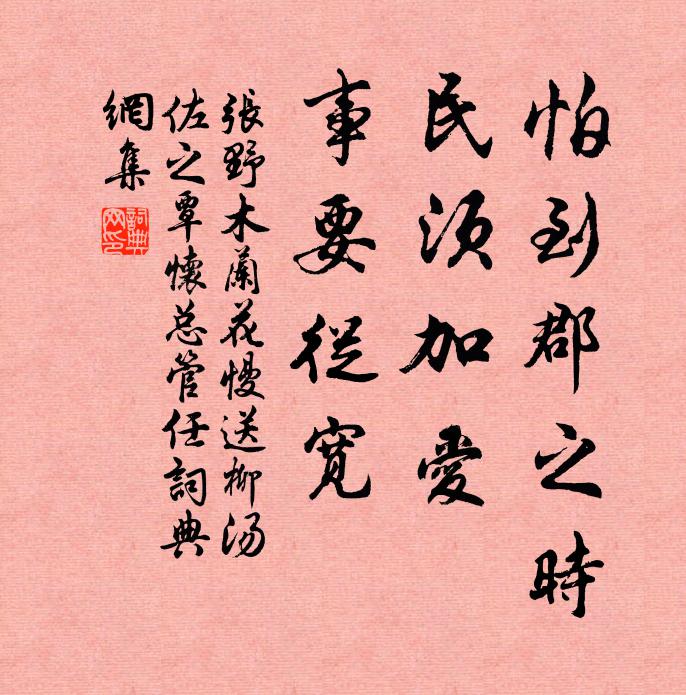 怕到郡之時
民須加愛
事要從寬
張野木蘭花慢送柳汤
佐之覃懷总管任詞典
網集
詞典網印